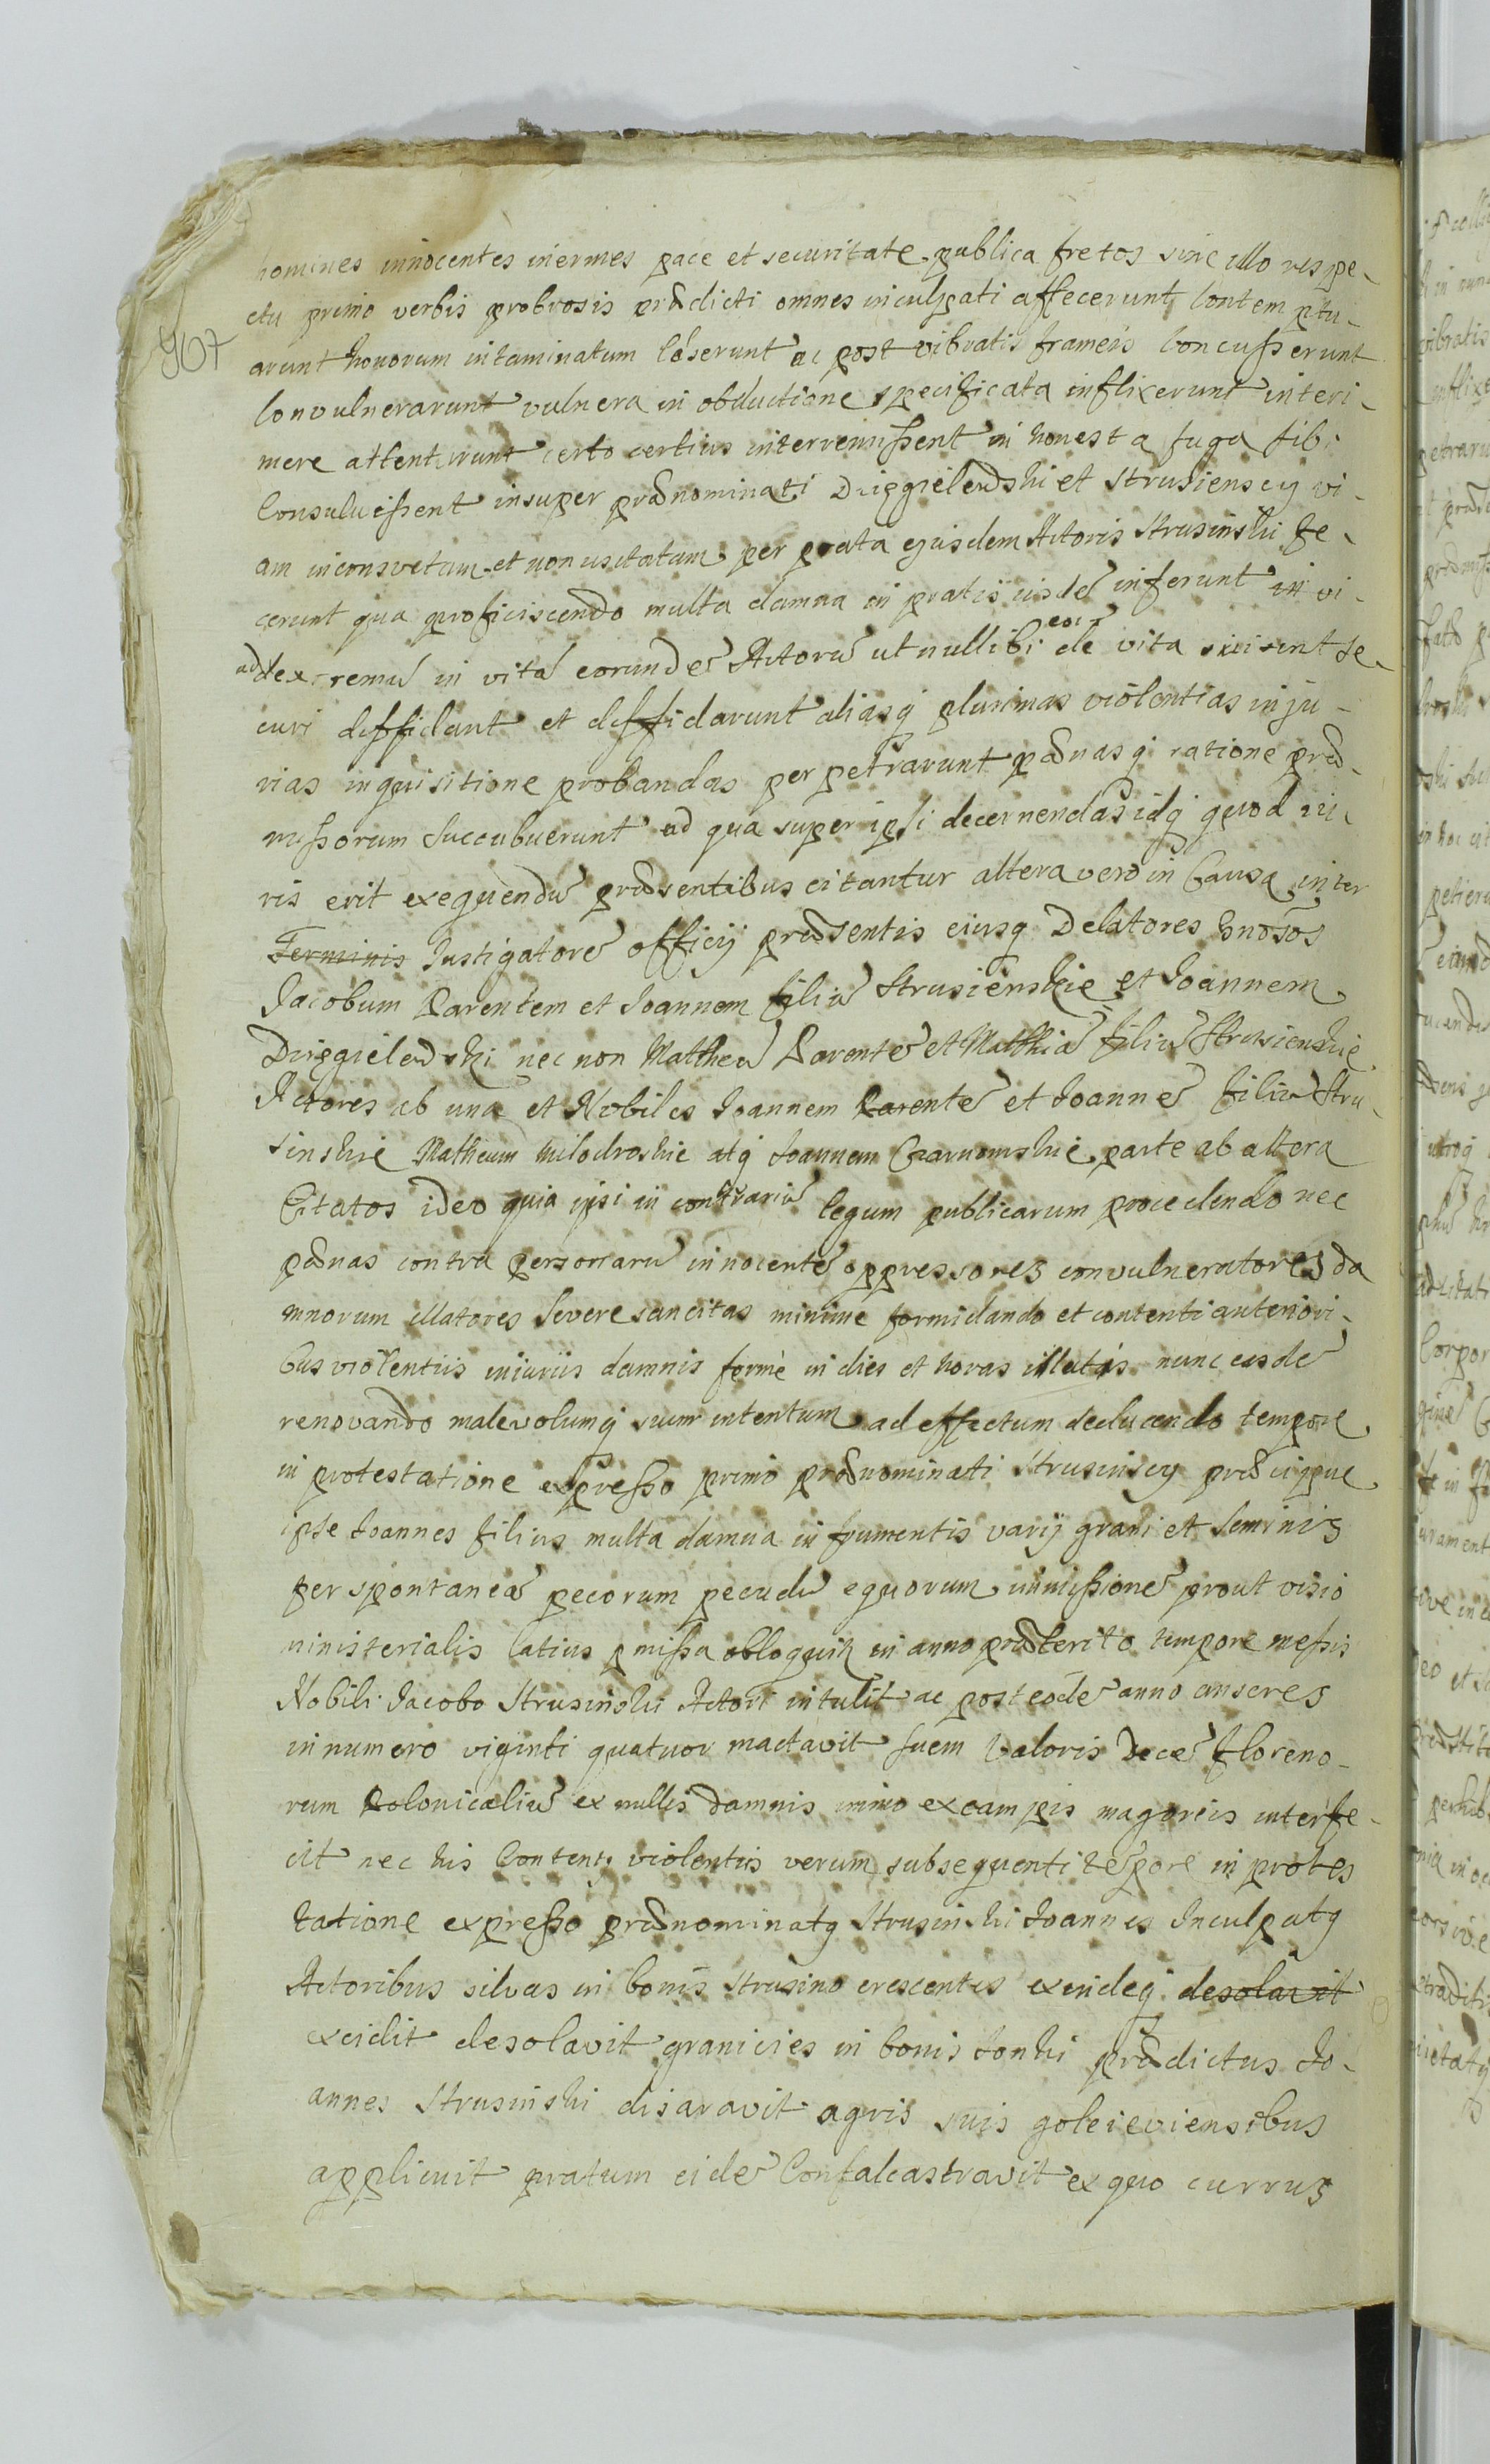 homines innocentes inermes pace et securitate publica fretos sine ullo respe-
ctu primo verbis probrosis prædicti omnes inculpati affecerunt contemptu-
907
arunt honorum intaminatum læserunt ac post vibratis frameis concusserunt
convulnerarunt vulnera in obductione specificata inflixerunt interi-
mere attentarunt certo certius intervenissent ni honesta fuga sibi
consuluissent insuper prænominati Dzięgielewski et Strusienscy vi-
am inconsvetam et non usitatam per prata ejusdem Actoris Strusinski fe-
cerunt qua proficiscendo multa damna in pratis iisdẽ inferunt in vi-
ad extremũ in vitã eorundẽ Actorũ ut nullibi de eor vita sui sint se-
curi diffidant et diffidarunt aliasq plurimas violentias inju-
rias inquisitione probandas perpetrarunt pænasq ratione præ-
missorum succubuerunt ad qua super ipsi decernendas idq quod iu-
ris erit exequendũ præsentibus citantur altera vero in Causa inter
Terminis Instigatorẽ officij præsentis eiusq Delatores Gnosos
Jacobum Parentem et Joannem filiũ Strusienskie et Joannem
Dzięgielewski nec non Matheũ Parentẽ et Matthiã filiũ Strusienskie
Actores ab una et Nobiles Joannem Parentẽ et Joannẽ filiũ Stru-
sinskie Matheum Milodroskie atq Joannem Czarnomskie parte ab altera
Citatos ideo quia ipsi in contrariũ legum publicarum procedendo nec
pænas contra personarũ innocentẽ oppressores convulneratores da
mnorum illatores severe sancitas minime formidando et contenti anteriori-
bus violentiis iniuriis damnis fermè in dies et horas illatis nunc easdẽ
renovando malevolumq suum intentum ad effectum deducendo tempore
in protestatione expresso primo prænominati Strusinscy præcipue
ipse Joannes filius multa damna in frumentis varij grani et seminis
per spontaneã pecorum pecudũ equorum immissionẽ prout visio
ministerialis latius pmissa obloquitr in anno præterito tempore messis
Nobili Jacobo Strusinski Actori intulit ac post eodẽ anno anseres
in numero viginti quatuor mactavit suem valoris decẽ floreno-
rum Polonicaliũ ex nullis damnis immo ex campis magoreis interfe-
cit nec his contentq violentiis verum subsequenti tẽpore in protes
tatione expresso prænominatq Strusinski Joannes Inculpatq
Actoribus silvas in bonis Strusino crescentes exindeq desolavit
excidit desolavit granicies in bonis Jonki prædictus Jo-
annes Strusinski disaravit agris suis goleieviensibus
applicuit pratum eidẽ confalcastravit ex quo currus